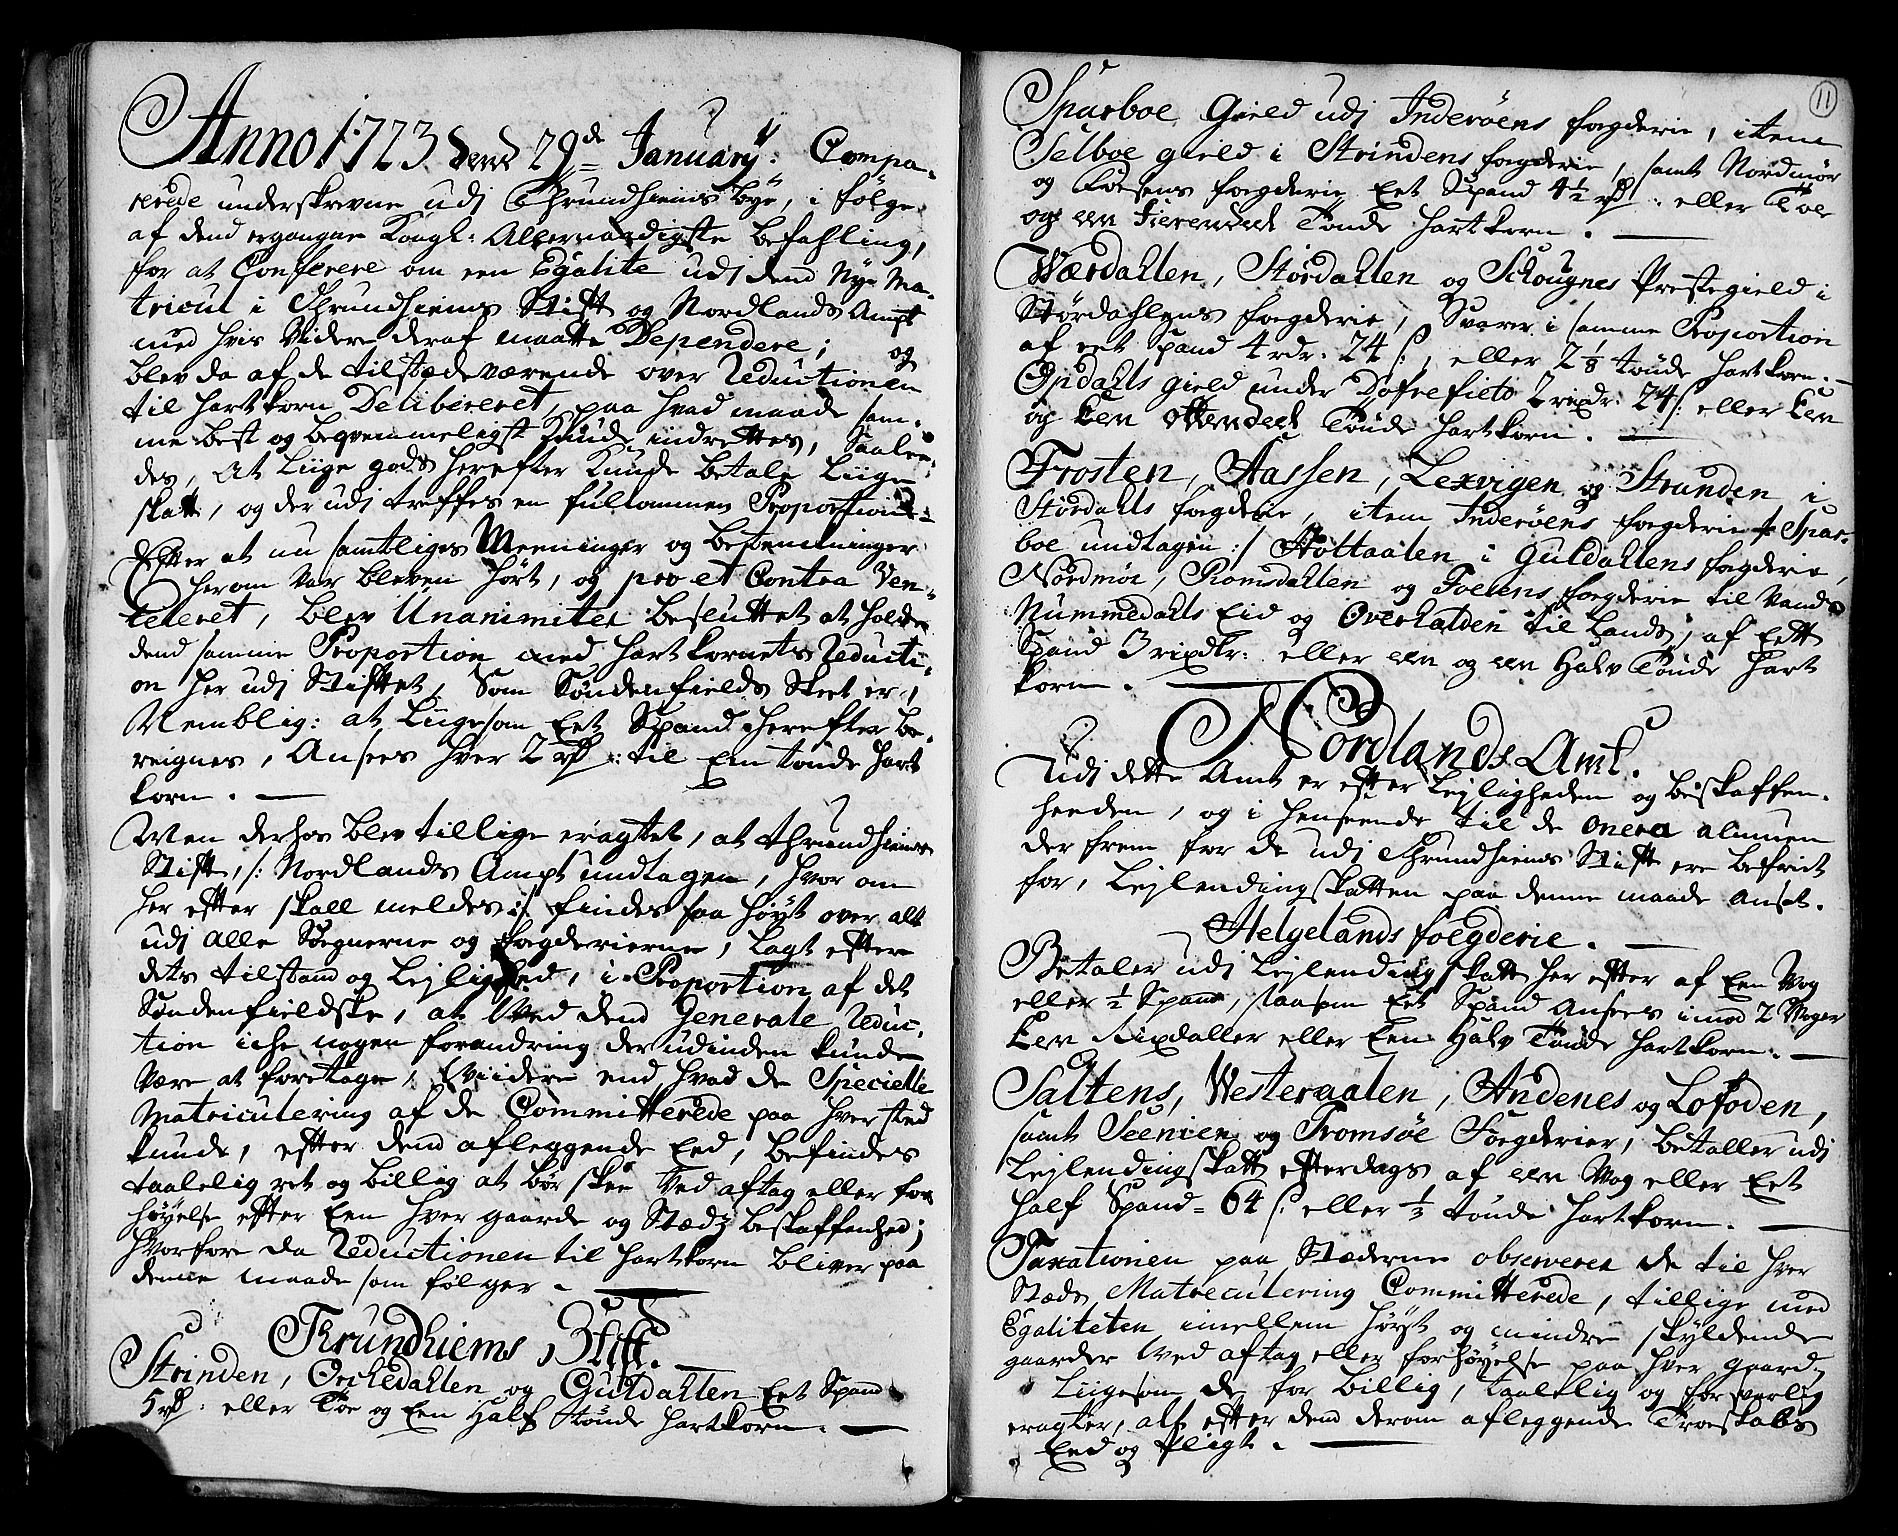 Anno 1723 dend 29de January: Compa-
rerede underskrevne udj Thrundhiems bye, i følge
af dend ergangne Kongl: Allernaadigste befahling,
for at Conferere om een Egalite udj dend Nye Ma-
tricul i Thrundhiems Stift og Nordlands Ampt
med hvis Videre deraf maatte Dependere; og
blev da af de tilstædeværende over Reductionen
til hartkorn Delibereret, paa hvad maade sam-
me best og beqvemmeligst kunde indrettes, Saalee-
des, At Liige gods herefter kunde betale Liige
skatt, og der udj treffes en fulkommen Proportion.
Efter at nu samtliges Meeninger og betenckninger
herom var bleven hørt, og pro et Contra Ven-
teleret, blev Unanimiter besluttet at holde
dend samme Proportion med hartkornets Reducti-
on her udj Stiftet, Som Søndenfields Skeet er,
Nemblig: at Liigesom Eet Spand herefter be-
reignes, Ansees hver 2 rd: til Een tønde hart
korn.
Men derhos blev tillige eragtet, at Thrundhiems
Stift, /: Nordlands Ampt undtagen, hvor om
her efter skall meldes :/ findes saa høyt over alt
udj alle Sognerne og fogderierne, lagt efter
dets tilstand og Lejlighed, i Proportion af det
Søndenfieldske, at Ved dend Generale Reduc-
tion iche nogen forandring derudinden kunde
være at foretage, Viidere end hvad de Specielle
Matriculering af de Committerede paa hver sted
kunde, efter dend afleggende Eed, befindes
taalelig ret og billig at bør skee Ved aftag eller for-
høyelse efter Een hver gaards og Stædz beskaffenhed;
hvorfore da Reductionen til hartkorn bliver paa
denne maade som følger.
Thrundhiems Stift.
Strinden, Orchedahlen og Guldahlen Eet Spand
5 rd: eller Toe og Een Half tønde hartkorn.
11
Sparboe Gield udj Inderøens fogderie, item
Selboe gield i Strindens fogderie, samt Nordmør
og Foesens fogderie Eet Spand 4 1/2 rd: eller Toe
og een fierendeel Tønde hartkorn.
Værdahlen, Størdahlen og Schougnes Prestegield i
Størdahlens fogderie, Svarer i samme Proportion
af eet Spand 4 rdr: 24 s:, eller 2 1/8 tønde hartkorn.
Opdahls gield under Dofrefield 2 rixdr: 24 s: eller Een
og Een ottendeel Tønde hartkorn.
Frosten, Aassen, Lexvigen og Stranden i
Størdahls fogderie, item Inderøens fogderie /: Spar-
boe undtagen :/ Holtaalen i Guldahlens fogderie,
Nordmør, Romsdahlen og Foesens fogderie til Vands
Nummedahls Eid og Overhalden til Lands, af Eett
Spand 3 rixdlr: eller een og een Halv Tønde Hart
korn.
Nordlands Amt.
Udj dette Amt er efter Lejligheden og beskaffen-
heeden, og i henseende til de onera almuen
der frem for de udj Thrundhiems Stift ere befriet
for, Lejlendingskatten paa denne maade anset.
Helgelands foegderie.
Betaler udj Lejlendingskatt her efter af Een Vog
eller 1/2 Spand, saasom Eet Spand Ansees imod 2 Voger
Een Rixdaller eller Een Halv Tønde Hartkorn.
Saltens, Westeraalen, Andenes og Lofoden,
samt Seenien og Tromsøe Foegderier, betaller udj
Lejlendingskatt efterdags af een Vog eller Eet
half Spand = 64 s: eller 1/3 tønde hartkorn.
Taxationen paa Stæderne observerer de til hver
Stæds Matriculering Committerede, tillige med
Egaliteten imellem høyt og mindre skyldende
gaarder Ved aftag eller forhøyelse paa hver gaard,
Liigesom de for billig, taalelig og forsvarlig
eragter, alt efter dend derom afleggende Troeskabs
Eed og Pligt.